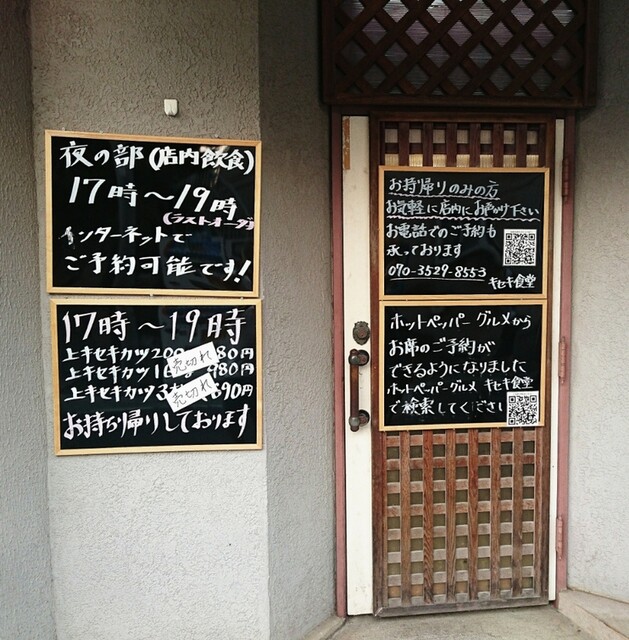 夜の部(店内飲食)
17時〜19時
(ラストオーダー)
インターネットで
ご予約可能です!
17時〜19時
上キセキカツ200 80円
売切れ
上キセキカツ 980円
上キセキカツ3 890円
売切れ
お持ち帰りしております
お持帰りのみの方
お気軽に店内にお声がけ下さい
お電話でのご予約も
承っております
070-3529-8553
キセキ食堂
ホットペッパー グルメから
お席のご予約が
できるようになりました
ホットペッパーグルメ キセキ食堂
で検索してください